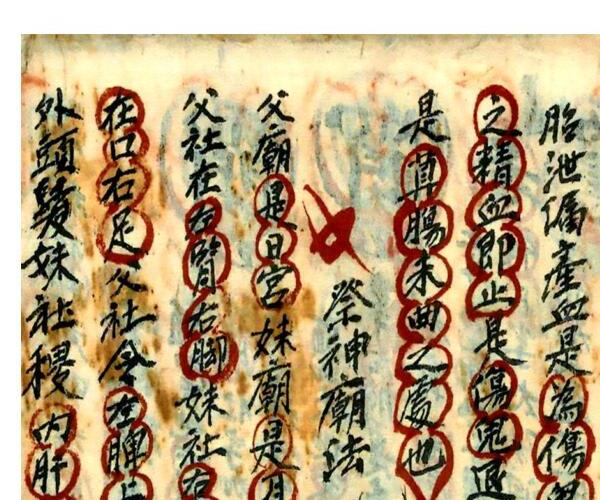 胎泄漏產血是為傷
之精血即止是傷鬼退
是直腸未曲之處也
祭神廟法
父廟是日宮妹廟是月
父社在右臂右脚妹社右
在口右足父社令在脾上
外頭髮妹社稷內肝